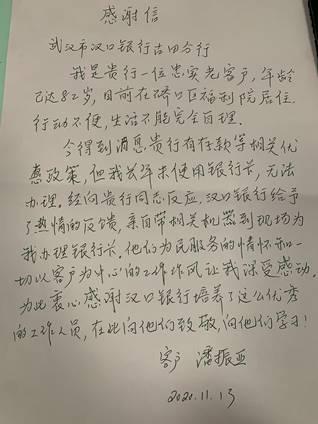 感谢信
武汉市汉口银行古田分行
我是贵行一位忠实老客户，年龄
已达82岁，目前在硚口区福利院居住
行动不便，生活不能完全自理．
今得到消息，贵行有存款等相关优
惠政策，但我长年未使用银行卡，无法
办理．经向贵行同志反应，汉口银行给予
了热情的反馈，亲自带相关机器到现场为
我办理银行卡．他们为民服务的情怀和一
切以客户为中心的工作作风让我深受感动．
为此衷心感谢汉口银行培养了这么优秀
的工作人员，在此向他们致敬，向他们学习！
客户 潘振亚
2020.11.13